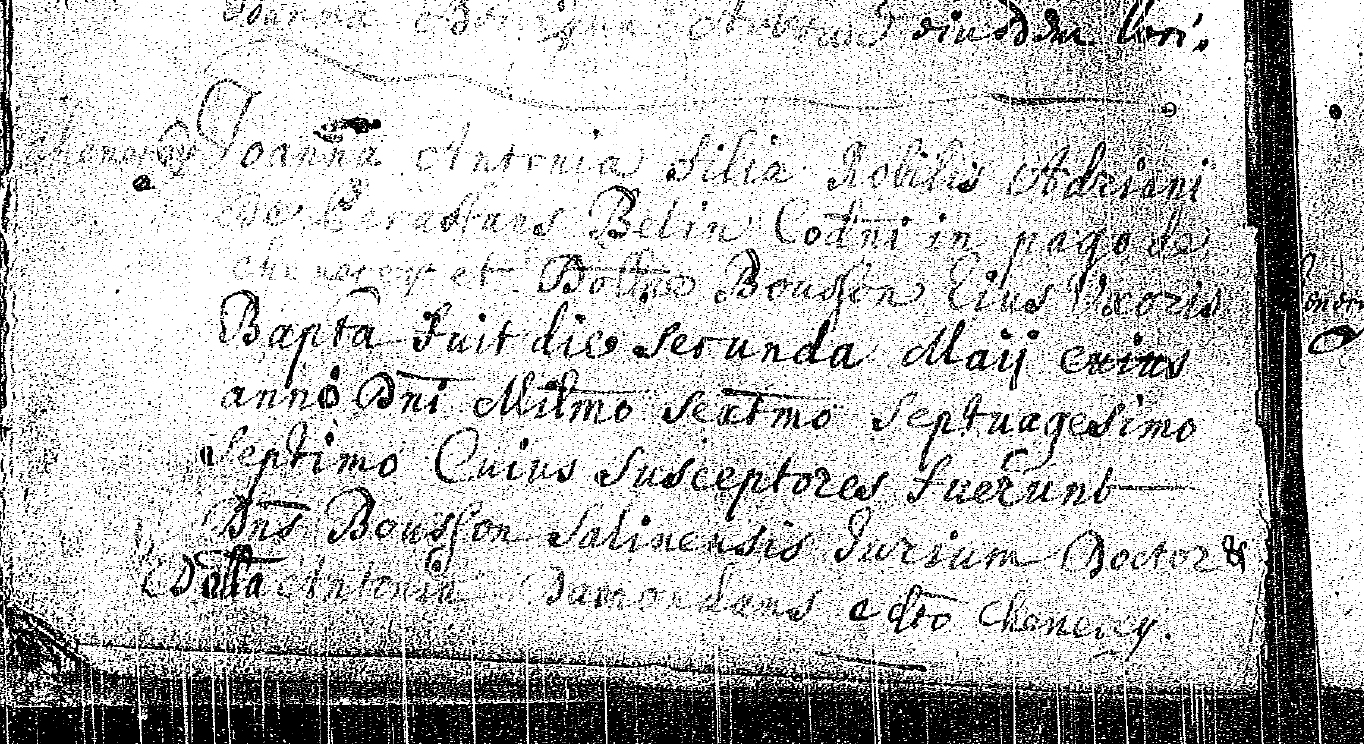 Joanna ejusdem loci.
Joanna Antonia filia Nobilis Adriani
De Betin Codni in pago de
chenecey et Dollae Bousson Eius Uxoris
Bapta fuit die secunda Maij
anno Dni Milmo sextmo septuagesimo
septimo Cuius susceptores fuerunt
Dns Bousson Salinensis Jurium Doctor &
Dolla Antonia Damondans e dto chenecey.